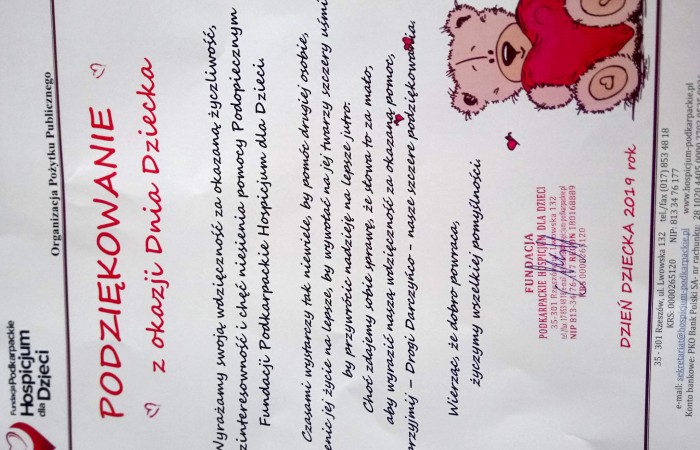 Fundacja Podkarpackie
Hospicjum
dla Dzieci
Organizacja Pożytku Publicznego
PODZIĘKOWANIE
z okazji Dnia Dziecka
Wyrażamy swoją wdzięczność za okazaną życzliwość,
zinteresowność i chęć niesienia pomocy Podopiecznym
Fundacji Podkarpackie Hospicjum dla Dzieci.
Czasami wystarczy tak niewiele, by pomóc drugiej osobie,
enić jej życie na lepsze, by wywołać na jej twarzy szczery uśmi
by przywrócić nadzieję na lepsze jutro.
Choć zdajemy sobie sprawę, że słowa to za mało,
aby wyrazić naszą wdzięczność za okazaną pomoc,
przyjmij – Drogi Darczyńco - nasze szczere podziękowania.
Wierząc, że dobro powraca,
życzymy wszelkiej pomyślności
FUNDACJA
PODKARPACKIE HOSPICJUM DLA DZIECI
35-301 Rzeszów, ul. Lwowska 132
NIP 813-34-76-177 REGON 180168889
KRS 0000265120
DZIEŃ DZIECKA 2019 rok
35 - 301 Rzeszów, ul. Lwowska 132 tel./fax (017) 853 48 18
KRS: 0000265120 NIP: 813 34 76 177
e-mail: sekretariat@hospicjum-podkarpackie.pl www.hospicjum-podkarpackie.pl
Konto bankowe: PKO Bank Polski SA- nr rachunku: 28 1020 4405 0000